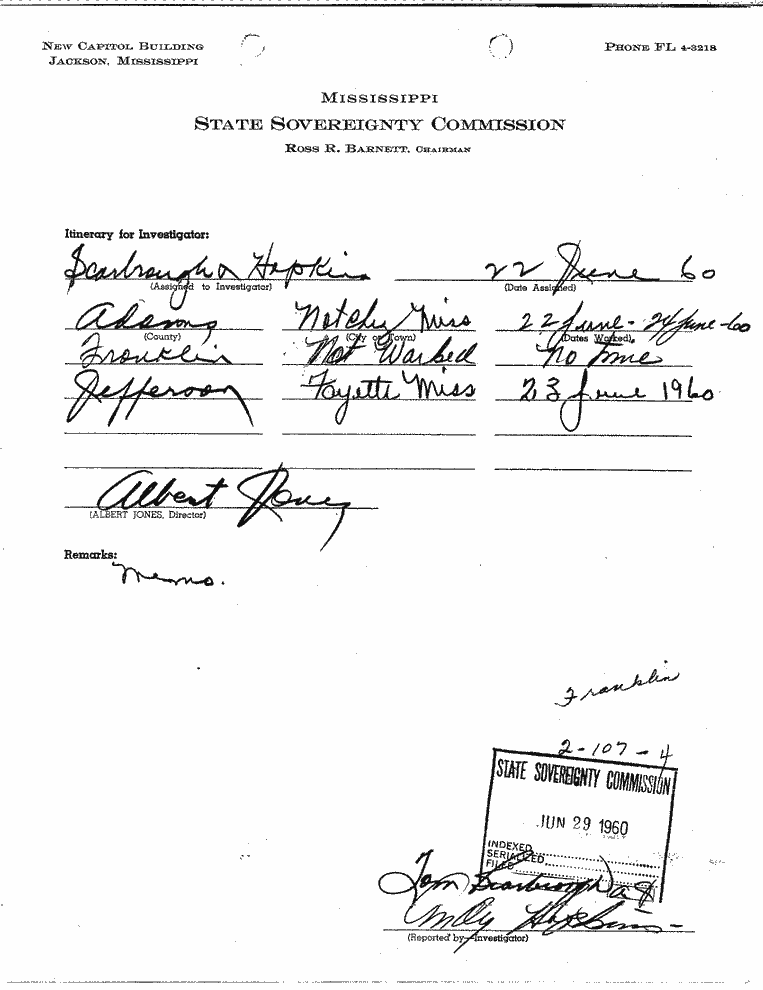 NEW CAPITOL BUILDING
JACKSON, MISSISSIPPI
PHONE FL 4-3218
MISSISSIPPI
STATE SOVEREIGNTY COMMISSION
ROSS R. BARNETT, CHAIRMAN
Itinerary for Investigator:
Scarbrough & Hopkins 22 June 60
(Assigned to Investigator) (Date Assigned)
Adams Natchez Miss 22 June - 24 June-60
(County) (City or Town) (Dates Worked)
Franklin Not Worked No time
Jefferson Fayette Miss 23 June 1960
Albert Jones
(ALBERT JONES, Director)
Remarks:
Memo.
Franklin
2-107-4
STATE SOVEREIGNTY COMMISSION
JUN 29 1960
INDEXED
SERIALIZED
FILED
Tom Scarbrough
Andy Hopkins
(Reported by—Investigator)